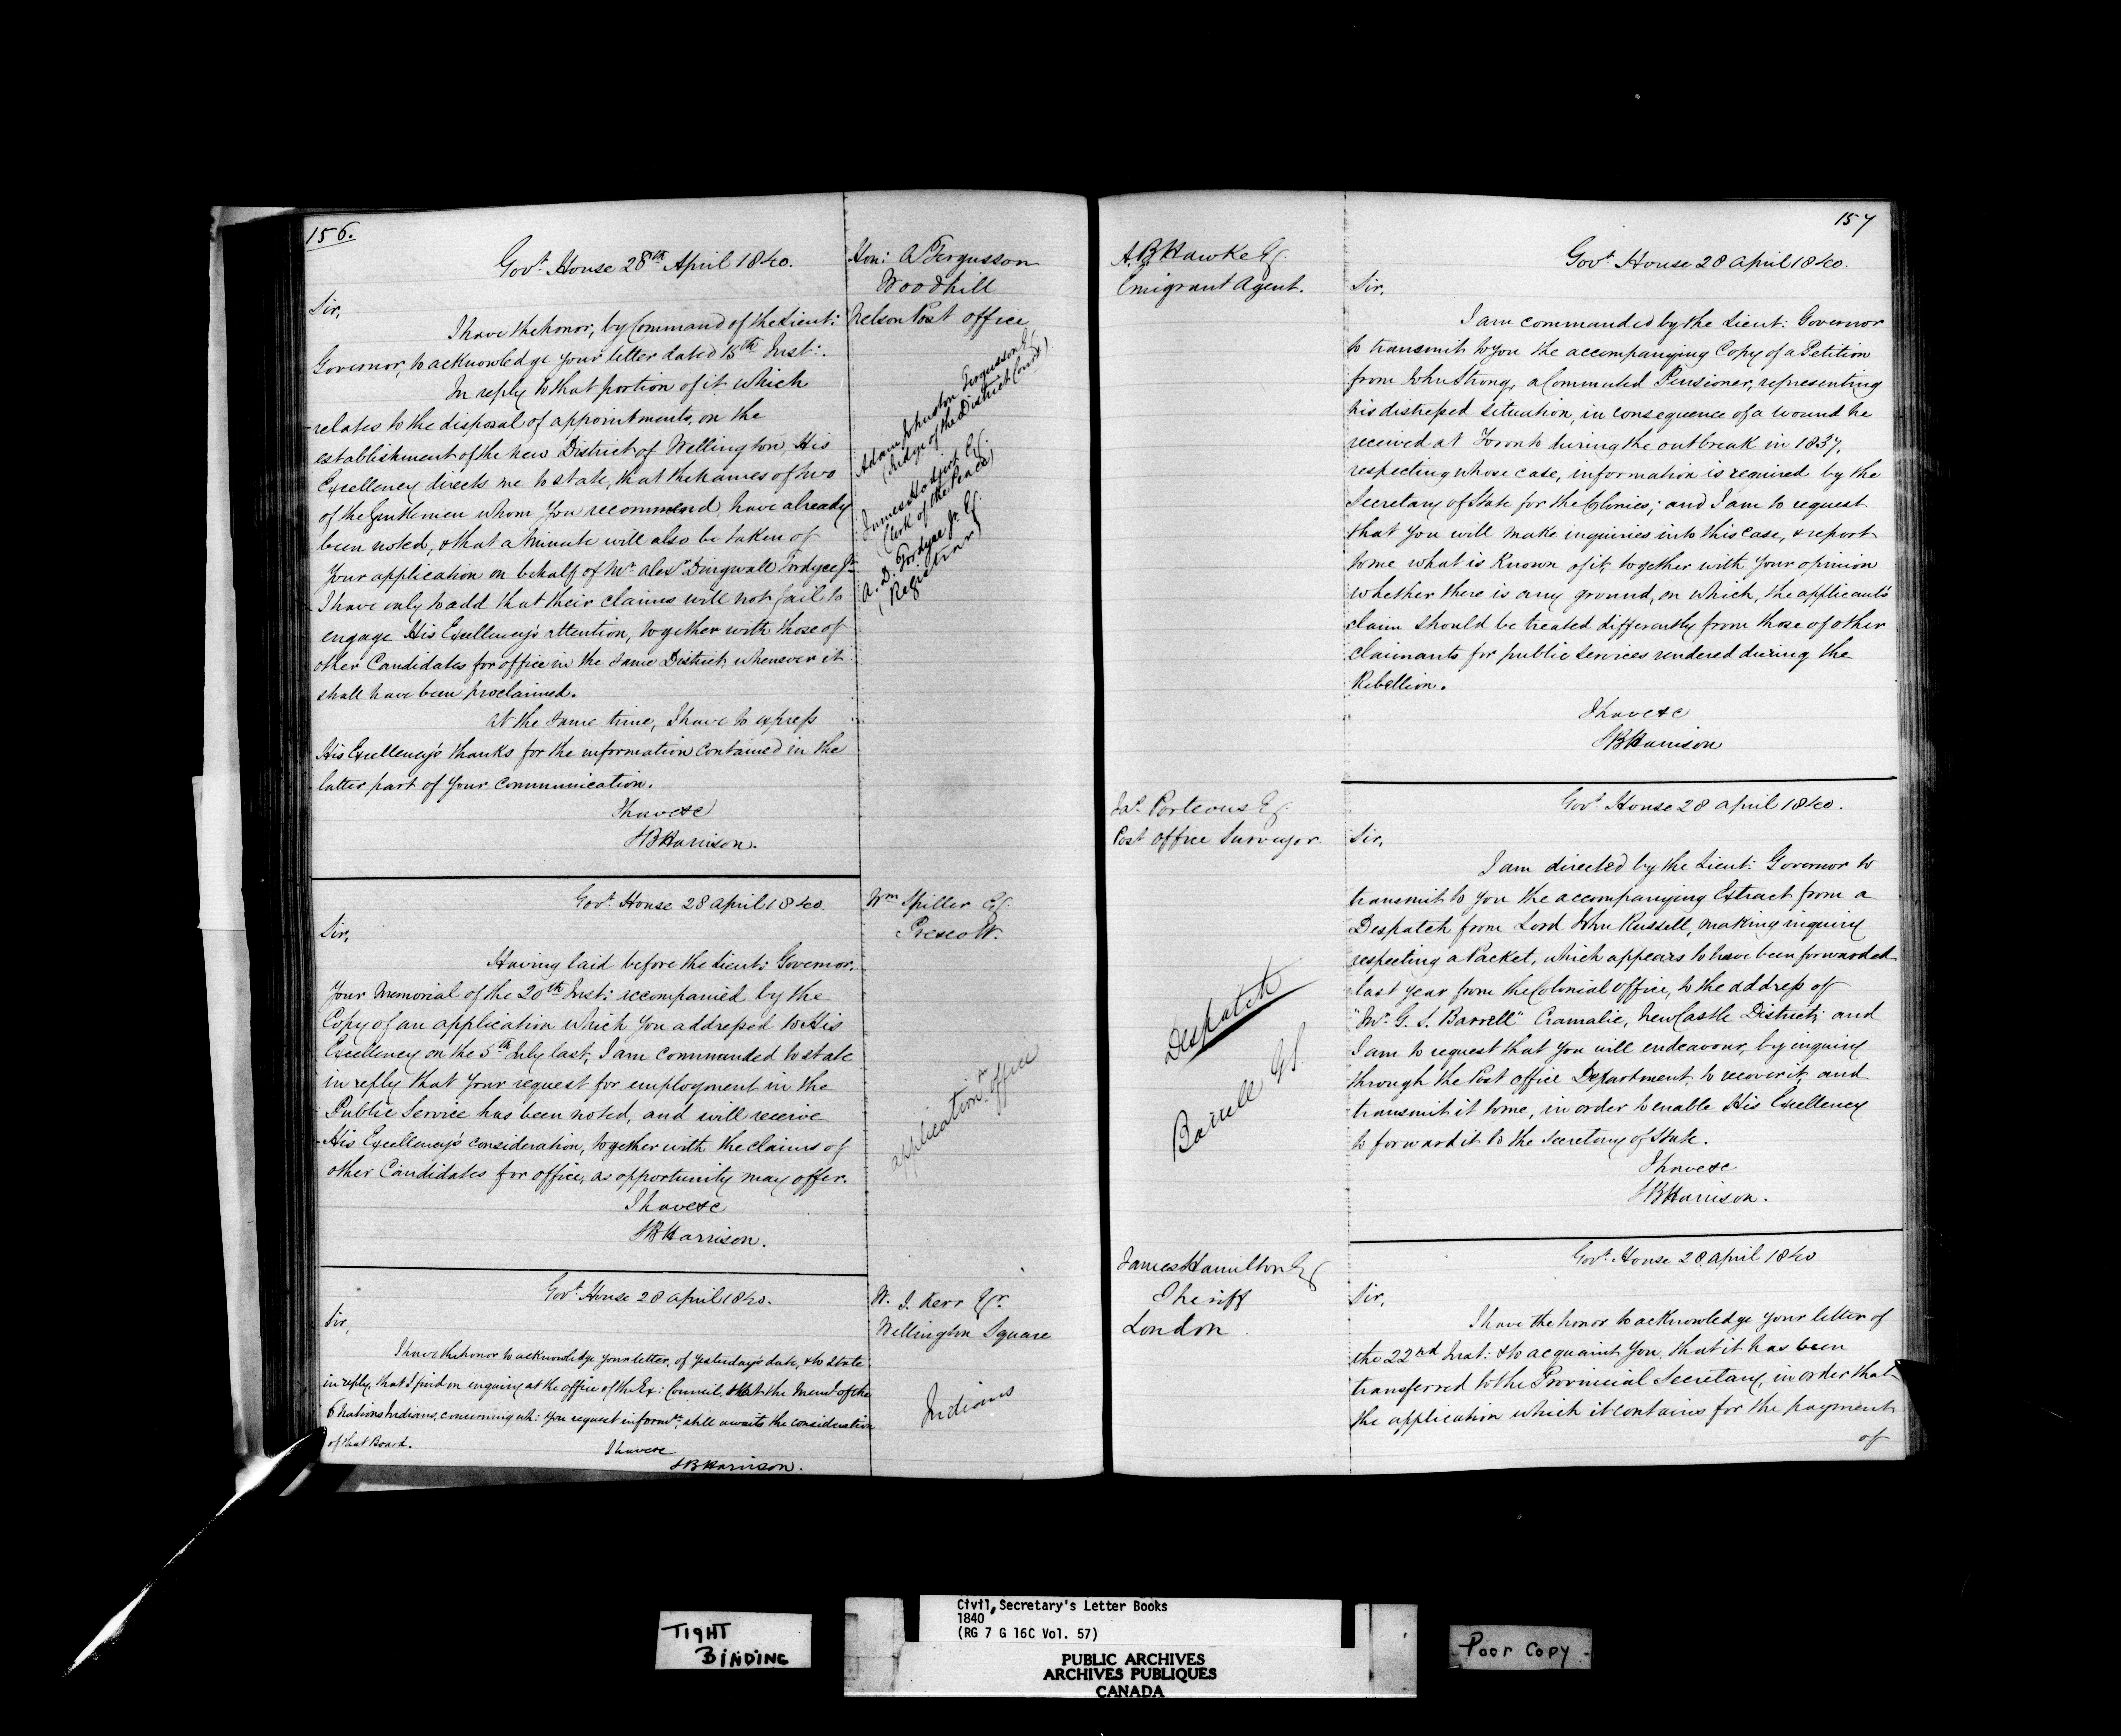 156.
Govt. House 28th April 1840.
Hon: A Fergusson
Woodhill
Nelson Post office
Sir,
I have the honor, by Command of the Lieut:
Governor, to acknowledge your letter dated 15th Inst:.
In reply to that portion of it which
relates to the disposal of appointments, on the
establishment of the new District of Wellington, His
Excellency directs me to state, that the names of two
of the Gentlemen whom you recommend, have already
been noted, & that a minute will also be taken of
Your application on behalf of Mr. Alexr. Dingwall Fordyce Jr.
I have only to add that their claims will not fail to
engage His Excellency's attention, together with those of
other Candidates for office in the same District, whensoever it
shall have been proclaimed.
At the same time, I have to express
His Excellency's thanks for the information contained in the
latter part of your communication.
I have &c
SB Harrison.
Adam Johnston Fergusson Esq
(Judge of the District Court)
James Hodgert Esq.
(Clerk of the Peace)
A. D. Fordyce Jr. Esq.
(Registrar)
Govt. House 28 April 1840.
Wm Spiller Esq.
Prescott.
Sir,
Having laid before the Lieut: Governor,
Your Memorial of the 20th Inst: accompanied by the
Copy of an application which you addressed to His
Excellency on the 5th July last, I am commanded to state
in reply that your request for employment in the
Public Service has been noted, and will receive
His Excellency's consideration, together with the claims of
other Candidates for office, as opportunity may offer.
I have &c
SB Harrison.
application fr. office
Govt. House 28 April 1840.
W. J. Kerr Esqr.
Wellington Square
Sir,
I have the honor to acknowledge your letter, of yesterday's date, & to state
in reply, that I find on enquiry at the office of the Ex: Council, that the Meml. of the
6 Nations Indians, concerning wh: you request informn., still awaits the consideration
of that Board.
I have &c
SB Harrison.
Indians
157
A. B. Hawke Esq.
Emigrant Agent.
Govt. House 28 April 1840.
Sir,
I am commanded by the Lieut: Governor
to transmit to you the accompanying Copy of a Petition
from John Strong, a Commuted Pensioner, representing
his distressed situation, in consequence of a wound he
received at Toronto during the outbreak in 1837,
respecting whose case, information is required by the
Secretary of State for the Colonies; and I am to request
that you will make inquiries into this case, & report
to me what is known of it, together with your opinion
whether there is any ground, on which, the applicant's
claim should be treated differently from those of other
claimants for public services rendered during the
Rebellion.
I have &c
SB Harrison
Jas. Porteous Esq.
Post Office Surveyor
Govt. House 28 April 1840.
Sir,
I am directed by the Lieut: Governor to
transmit to you the accompanying Extract from a
Despatch from Lord John Russell, making inquiry
respecting a Packet, which appears to have been forwarded
last year from the Colonial Office, to the address of
"Mr. G. S. Barrell" Cramalie, NewCastle District; and
I am to request that you will endeavour, by enquiry
through the Post office Department, to recover it, and
transmit it to me, in order to enable His Excellency
to forward it to the Secretary of State.
I have &c
SB Harrison.
Despatch
Barrell G S.
James Hamilton Esq
Sheriff
London
Govt. House 28 April 1840
Sir,
I have the honor to acknowledge your letter of
the 22nd Inst: & to acquaint you, that it has been
transferred to the Provincial Secretary, in order that
the application which it contains for the payment
of
TIGHT
BINDING
Civil Secretary's Letter Books
1840
(RG 7 G 16C Vol. 57)
PUBLIC ARCHIVES
ARCHIVES PUBLIQUES
CANADA
Poor Copy